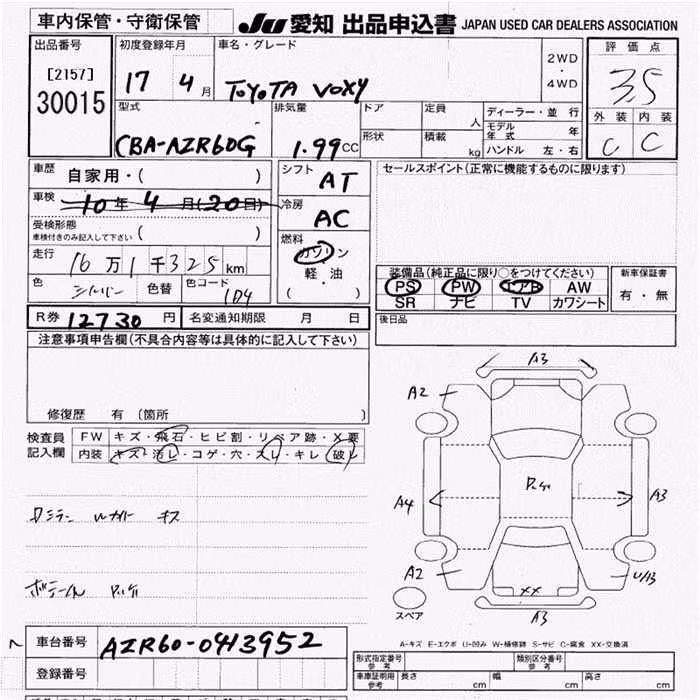 車内保管・守衛保管 JU 愛知 出品申込書 JAPAN USED CAR DEALERS ASSOCIATION
出品番号 初度登録年月 車名・グレード 評価点
[2157] 30015
17 4月 TOYOTA VOXY 2WD・4WD 3.5
型式 排気量 ドア 定員 人 ディーラー・並行 外装 内装
CBA-AZR60G 1.99CC 形状 積載 kg モデル年式 年 C C
ハンドル 左・右
車歴 自家用・( ) シフト AT セールスポイント(正常に機能するものに限ります)
車検 10年4月(20日) 冷房 AC
受検形態 車検付きのみ記入して下さい ( )
燃料 ガソリン
走行 16万1千325km 軽・油
色 シルバー 色替 色コード 1D4 ( )
装備品(純正品に限り○をつけてください) 新車保証書
PS PW エアB AW 有・無
SR ナビ TV カワシート
R券 12730円 名変通知期限 月 日 後日品
注意事項申告欄(不具合内容等は具体的に記入して下さい)
修復歴 有 (箇所 )
検査員記入欄 FW キズ・飛石・ヒビ割・リペア跡・X要
内装 キズ・汚レ・コゲ・穴・スレ・キレ・破レ
A3
A2
A4 A3
A2 U/A3
XX
A3
スペア
A-キズ E-エクボ U-凹み W-補修跡 S-サビ C-腐食 XX-交換済
車台番号 AZR60-0413952
登録番号
形式指定番号 参考 類別区分番号 参考
車庫証明用 参考 長さ cm 幅 cm 高さ cm